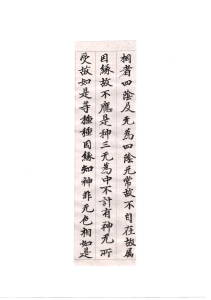 相者四陰及无為四陰无常故不自在故属
因緣故不應是神三无為中不計有神无所
受故如是等種種因緣知神非无色相如是